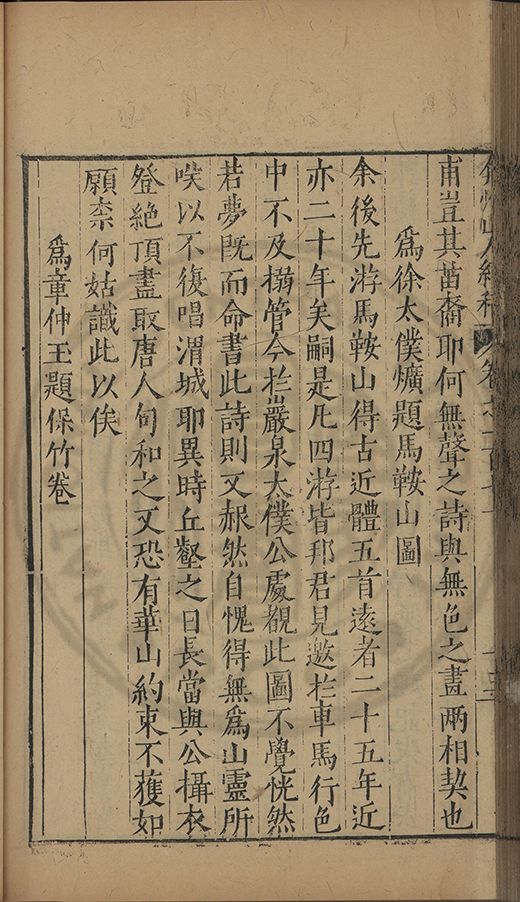 弇州山人續稿 卷之一百七十
甫豈其苗裔耶何無聲之詩與無色之畫兩相契也
爲徐太僕爌題馬鞍山圖
余後先游馬鞍山得古近體五首遠者二十五年近
亦二十年矣嗣是凡四游皆邦君見邀於車馬行色
中不及搦管今於巖泉太僕公處覩此圖不覺恍然
若夢既而命書此詩則又赧然自愧得無爲山靈所
唉以不復唱渭城耶異時丘壑之日長當與公攝衣
登絶頂盡取唐人句和之又恐有華山約束不獲如
願柰何姑識此以俟
爲章仲玉題保竹卷